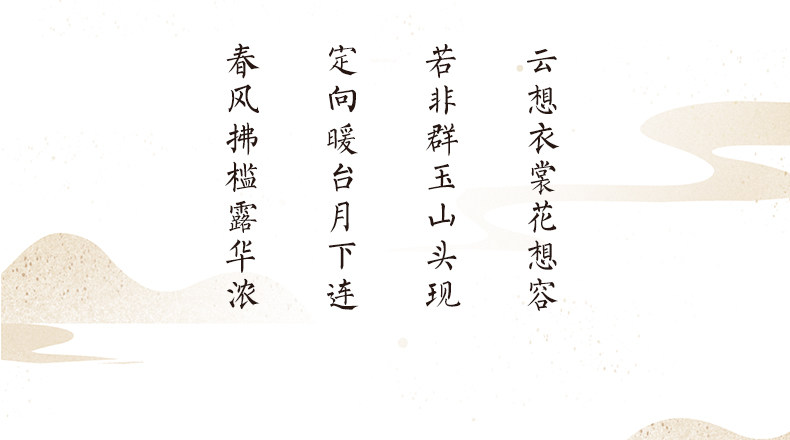 云想衣裳花想容
若非群玉山头现
定向暖台月下连
春风拂槛露华浓